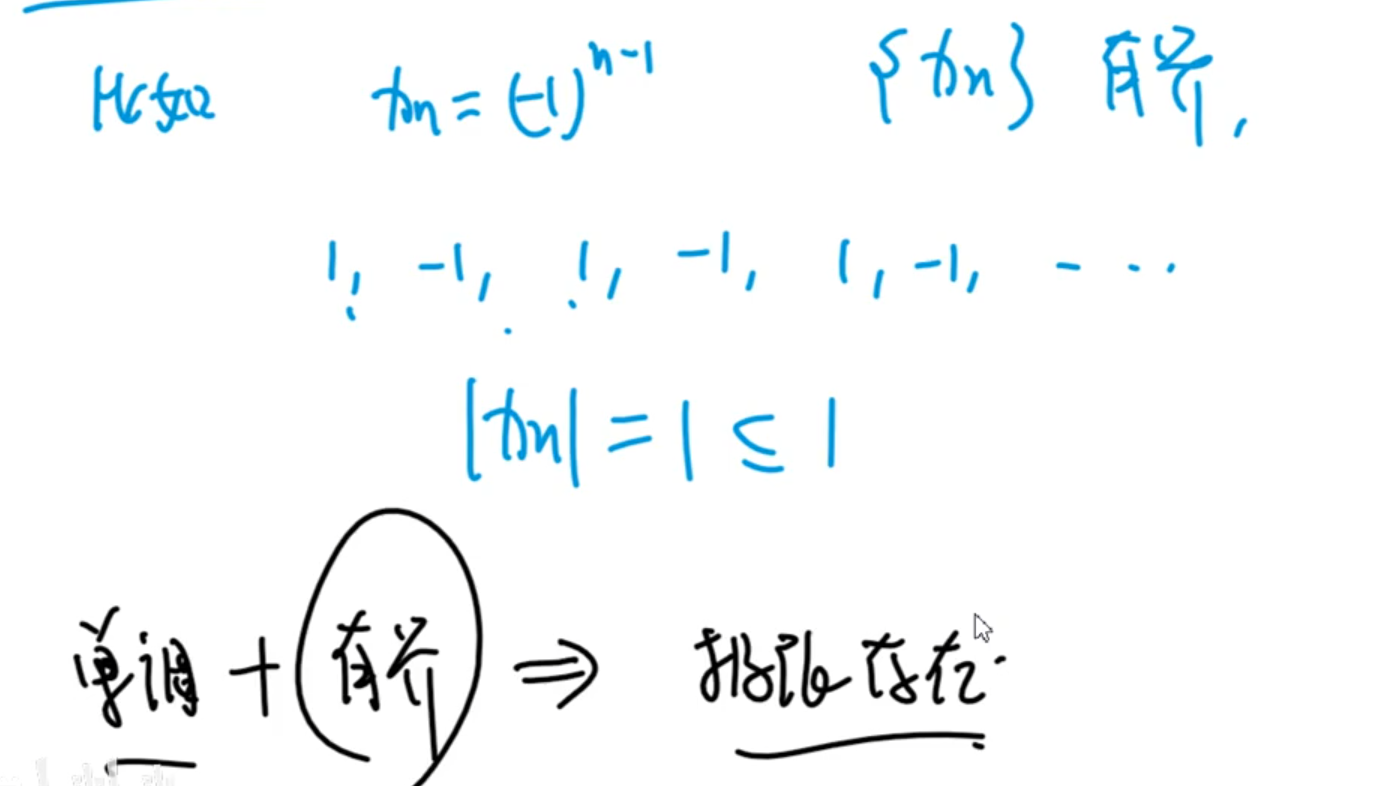 比如 xn = (-1)^{n-1} {xn} 有界,
1, -1, 1, -1, 1, -1, - ...
|xn| = 1 ≤ 1
单调 + 有界 ⇒ 极限存在.